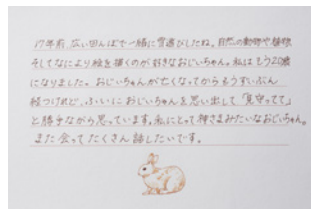 17年前 広い田んぼで一緒に雪遊びしたね。自然の動物や植物
そしてなにより絵を描くのが好きなおじいちゃん。私はもう20歳
になりました。おじいちゃんが亡くなってからもうずいぶん
経つけれど、ふいにおじいちゃんを思い出して「見守ってて」
と勝手ながら思っています。私にとって神さまみたいなおじいちゃん。
また会ってたくさん話したいです。